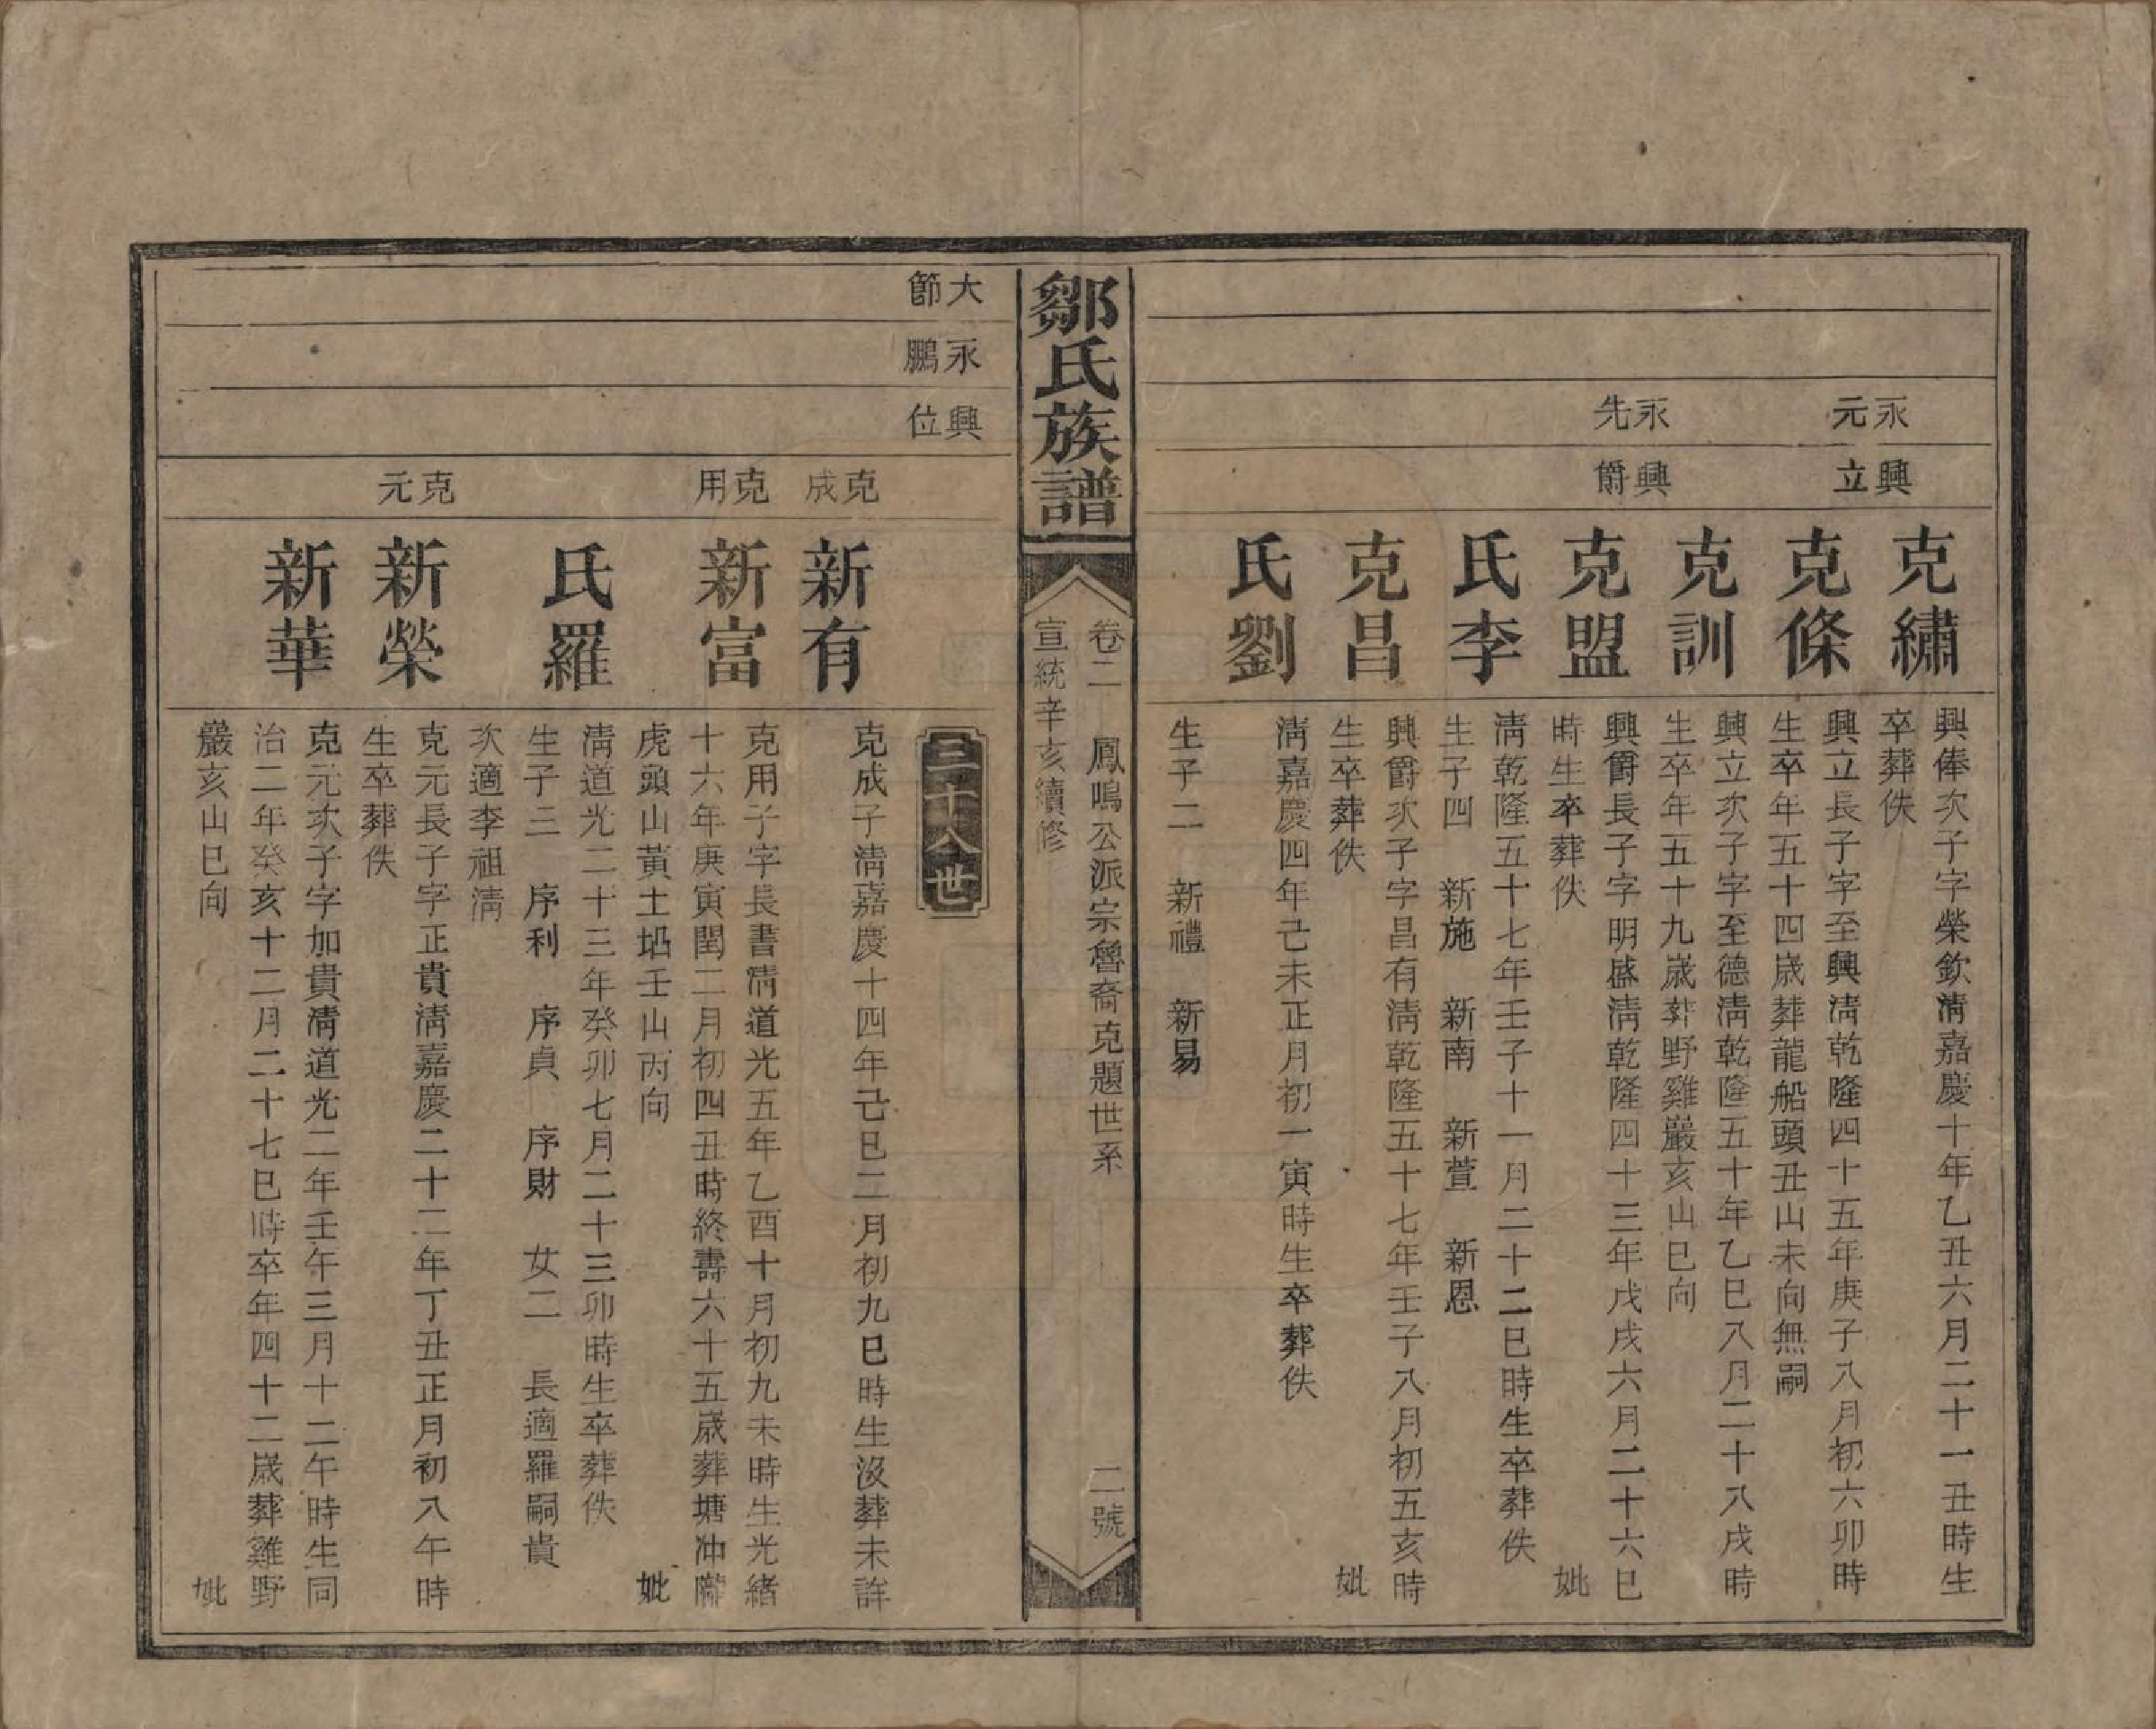 永元
興立
克繡
興俸次子字榮欽淸嘉慶十年乙丑六月二十一丑時生
卒葬佚
克條
興立長子字至興淸乾隆四十五年庚子八月初六卯時
生卒年五十四歲葬龍船頭丑山未向無嗣
克訓
興立次子字至德淸乾隆五十年乙巳八月二十八戌時
生卒年五十九歲葬野雞巖亥山巳向
永先
興爵
克盟
興爵長子字明盛淸乾隆四十三年戊戌六月二十六巳
時生卒葬佚 妣
氏李
淸乾隆五十七年壬子十一月二十二巳時生卒葬佚
生子四 新施 新南 新萱 新恩
克昌
興爵次子字昌有淸乾隆五十七年壬子八月初五亥時
生卒葬佚 妣
氏劉
淸嘉慶四年己未正月初一寅時生卒葬佚
生子二 新禮 新易
鄒氏族譜
卷二 鳳鳴公派宗魯裔克題世系 二號
宣統辛亥續修
大節
永鵬
興位
三十八世
克成
新有
克成子淸嘉慶十四年己巳二月初九巳時生沒葬未詳
克用
新富
克用子字長書淸道光五年乙酉十月初九未時生光緖
十六年庚寅閏二月初四丑時終壽六十五歲葬塘冲
虎頭山黃土壋壬山丙向 妣
氏羅
淸道光二十三年癸卯七月二十三卯時生卒葬佚
生子三 序利 序貞 序財 女二 長適羅嗣貴
次適李祖淸
克元
新榮
克元長子字正貴淸嘉慶二十二年丁丑正月初八午時
生卒葬佚
新華
克元次子字加貴淸道光二年壬午三月十二午時生同
治二年癸亥十二月二十七巳時卒年四十二歲葬雞野
巖亥山巳向 妣